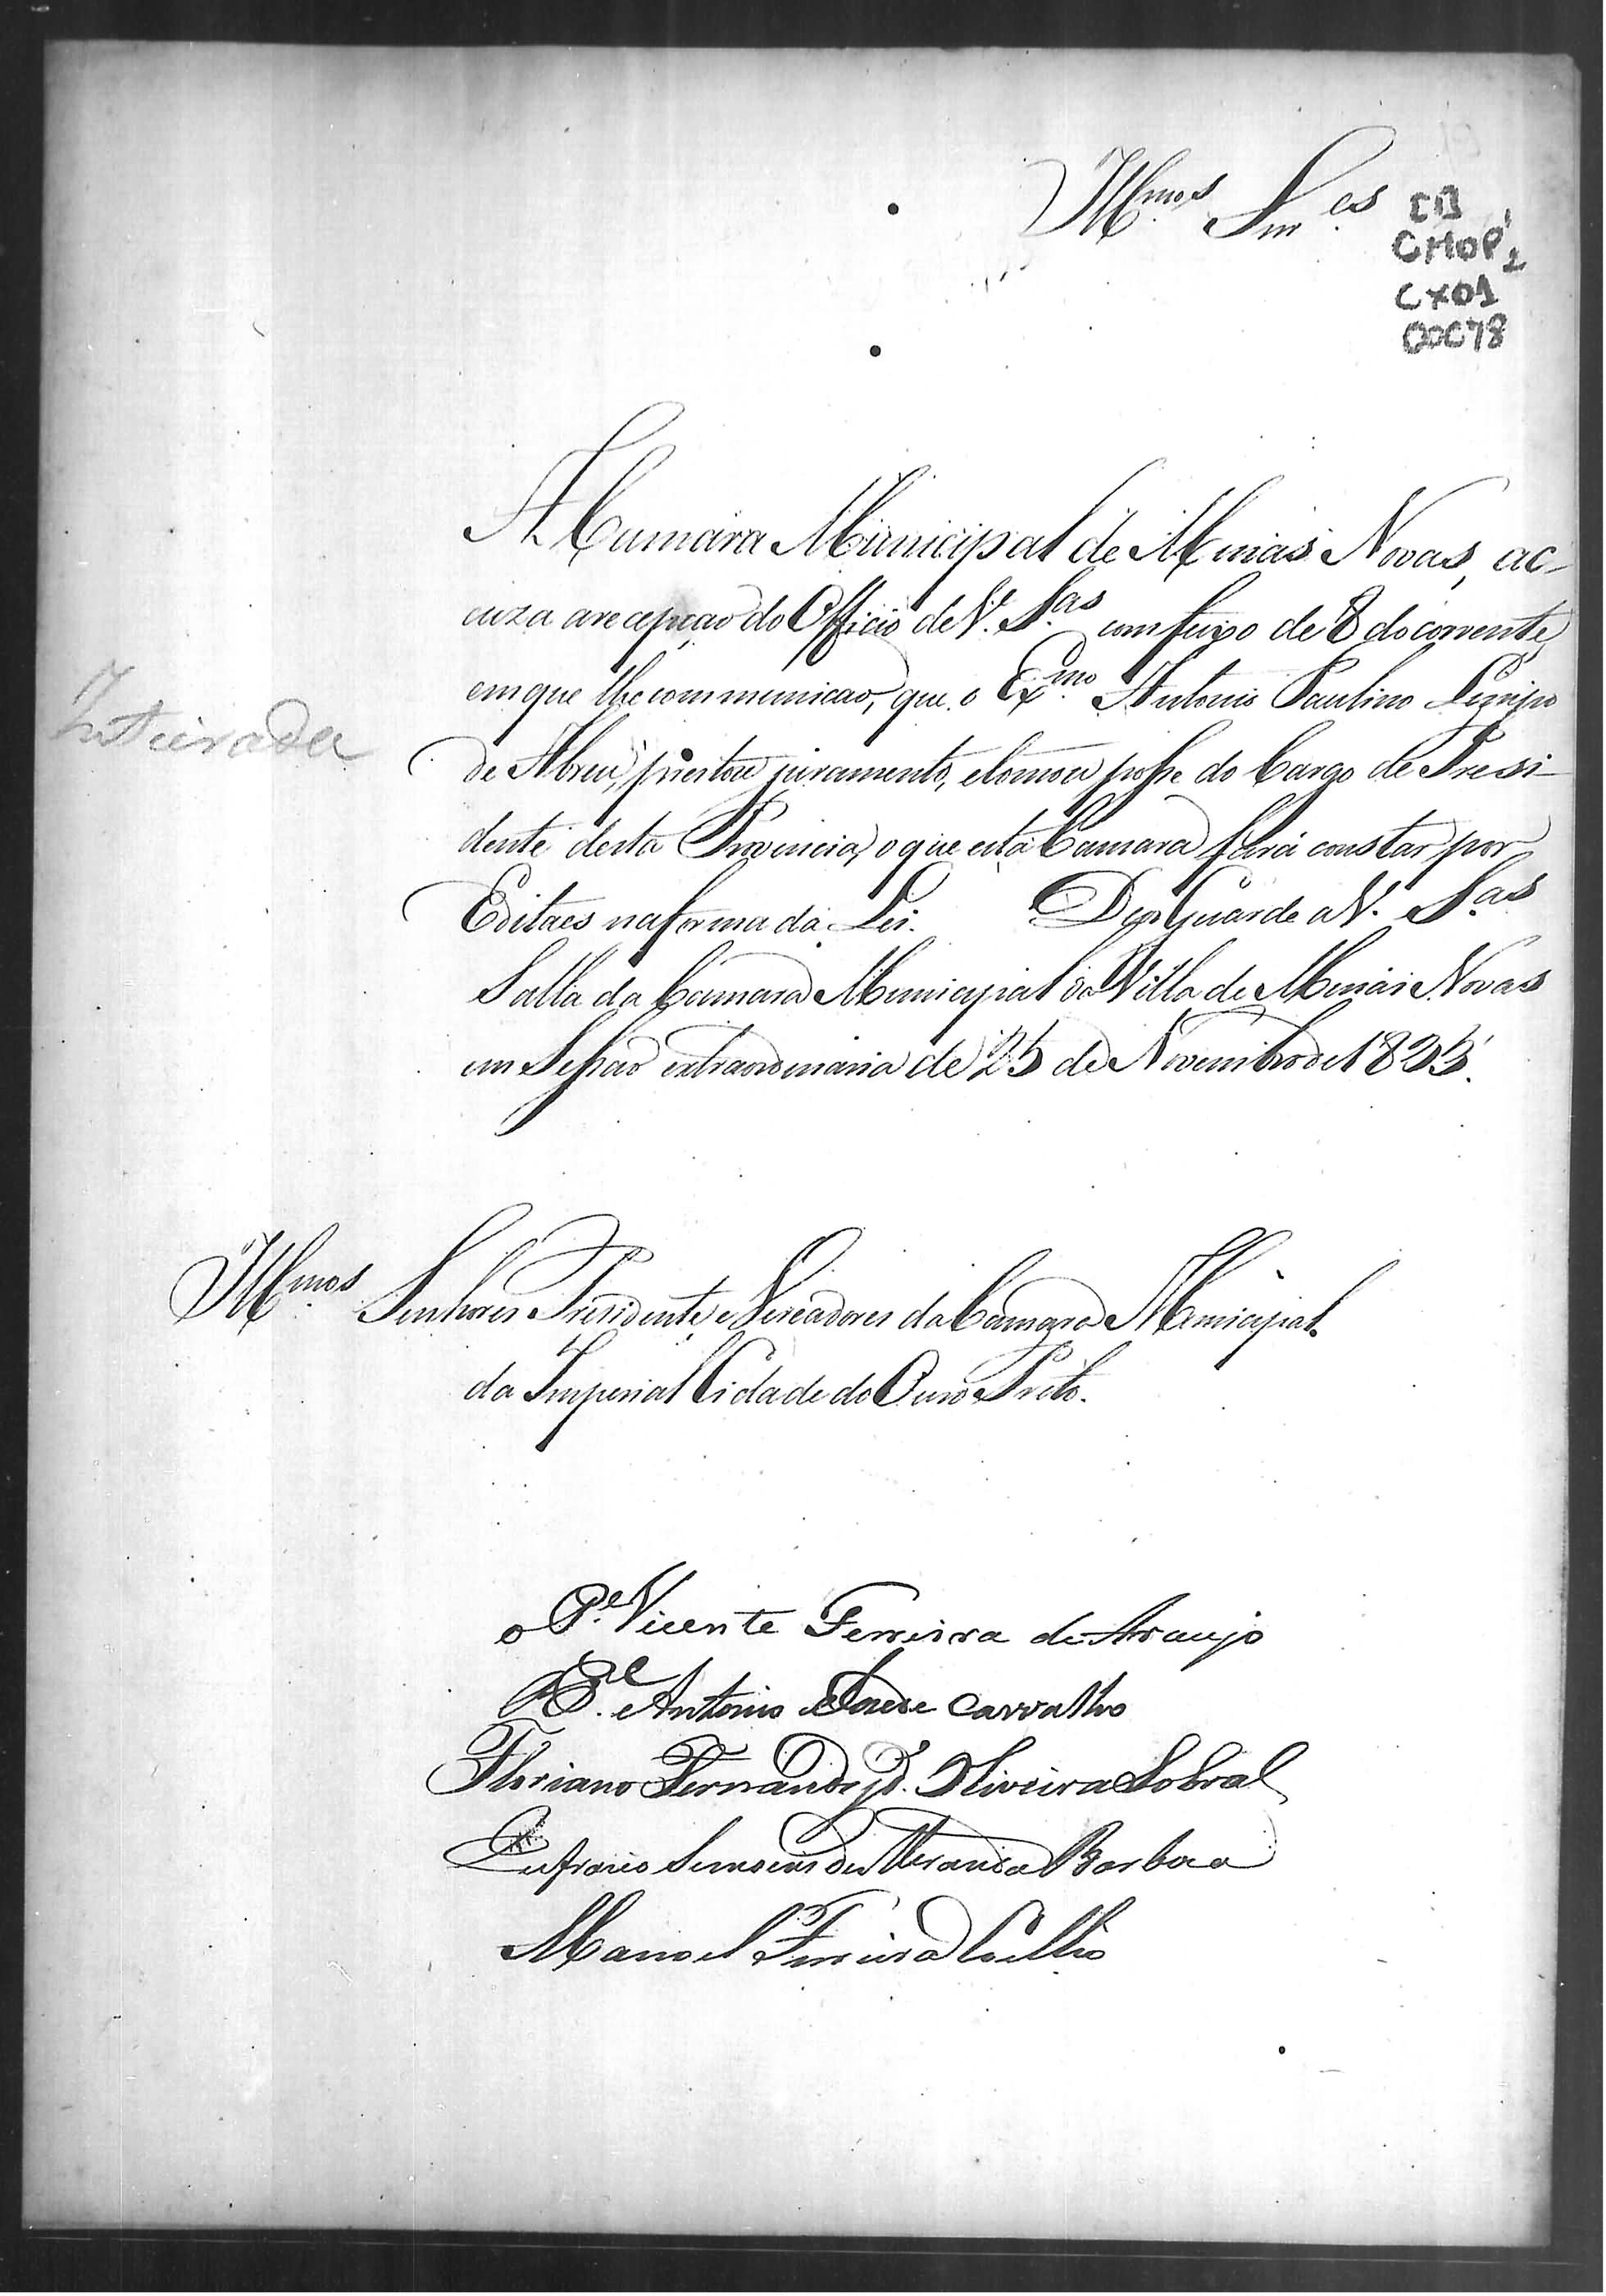 Illmos. Snres.
CB
CMOP
CX01
00078
A Camara Municipal de Minas Novas, ac-
cuza arecepção do Officio de V. S.as com fuxo de 8 do corrente,
emque lhe communicaõ, que o Ex.mo Antonio Paulino Limpo
Inteirada
de Abreu, prestou juramento, etomou posse do Cargo de Presi-
dente desta Provincia, oque esta Camara fará constar por
Editaes naforma da Lei. Deos Guarde a V. S.as
Salla da Camara Municipal da Villa de Minas Novas
em Sessaõ extraordinaria de 25 de Novembro de 1833.
Illmos. Senhores Presidente, e Vereadores da Camara Municipal
da Imperial Cidade do Ouro Preto.
o P.e Vicente Ferreira de Araujo
O P.e Antonio de Carvalho
Floriano Fernandes d'Oliveira Sobral
de Barboza
Manoel Ferreira Coelho